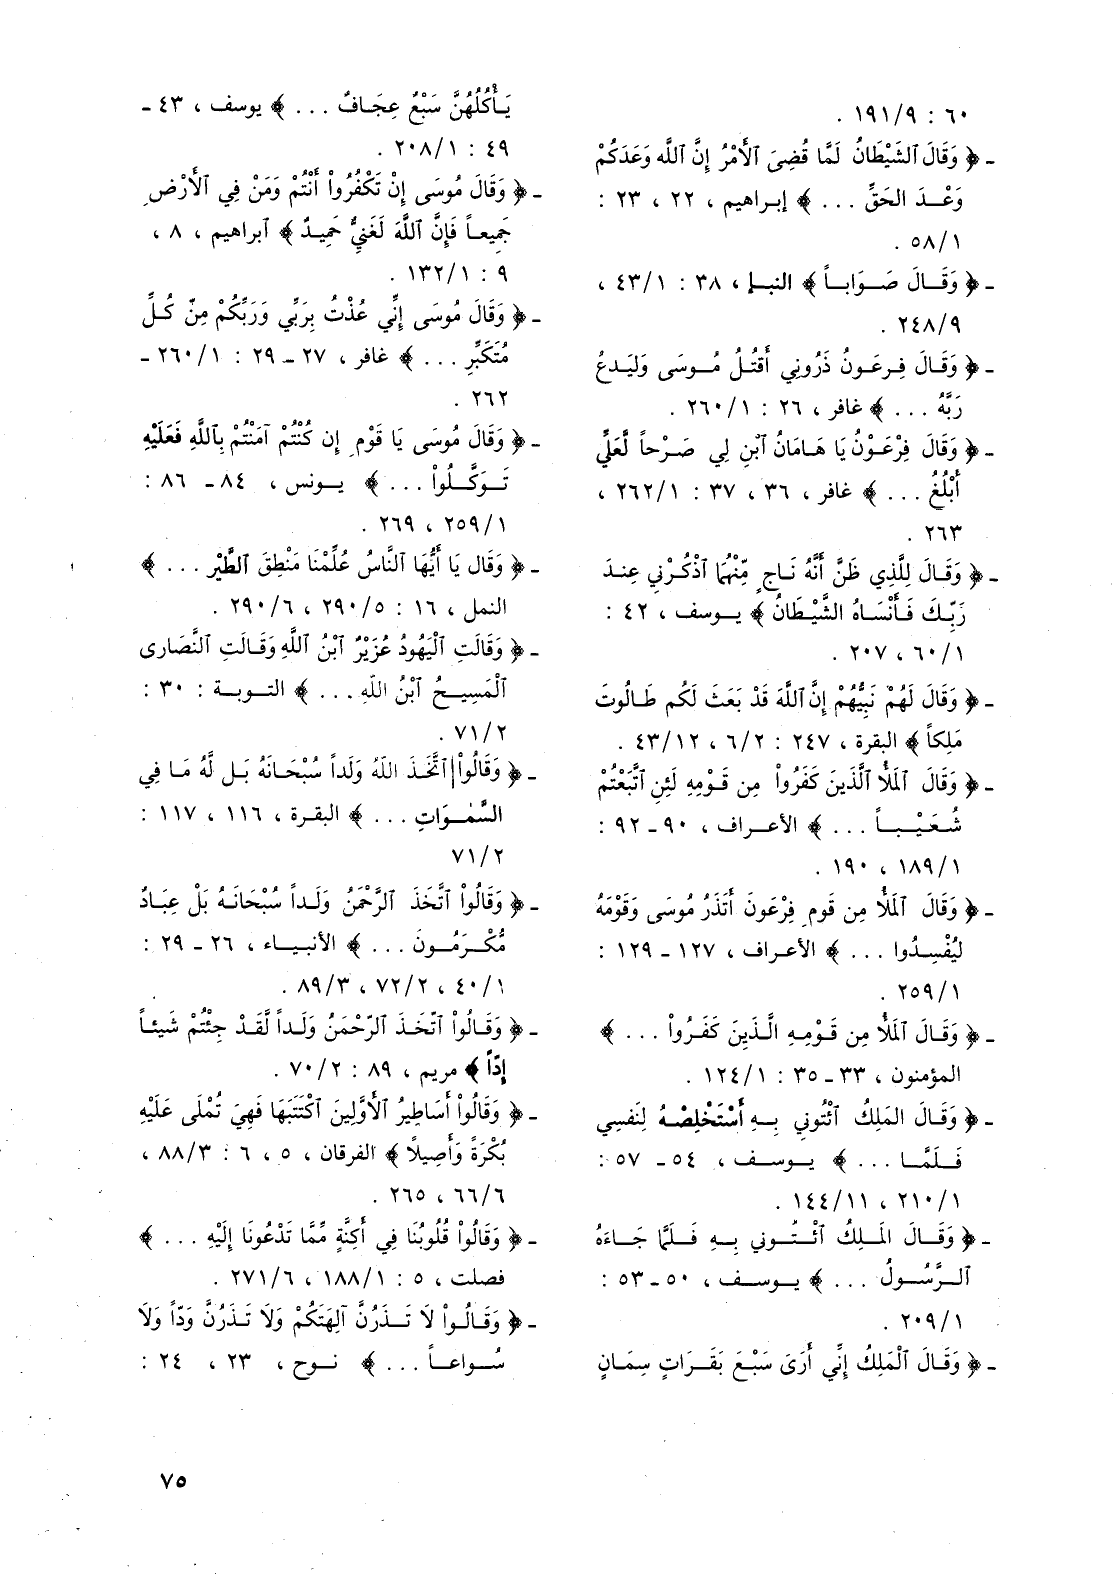 ٦٠ : ١٩١/٩ .
ـ ﴿ وَقَالَ ٱلشَّيْطَانُ لَمَّا قُضِيَ ٱلأَمْرُ إِنَّ ٱللَّهَ وَعَدَكُمْ
وَعْـدَ الحَقِّ ... ﴾ إبـراهيم ، ٢٢ ، ٢٣ :
٥٨/١ .
ـ ﴿ وَقَـالَ صَـوَابـاً ﴾ النبـإ ، ٣٨ : ٤٣/١ ،
٢٤٨/٩ .
ـ ﴿ وَقَـالَ فِـرعَـونُ ذَرُونِي أَقتُـلُ مُـوسَى وَليَـدعُ
رَبَّهُ ... ﴾ غافر ، ٢٦ : ٢٦٠/١ .
ـ ﴿ وَقَالَ فِرْعَوْنُ يَا هَـامَانُ ٱبْنِ لِي صَـرْحاً لَعَلِّي
أَبْلُغُ ... ﴾ غافر ، ٣٦ ، ٣٧ : ٢٦٢/١ ،
٢٦٣ .
ـ ﴿ وَقَـالَ لِلَّذِي ظَنَّ أَنَّهُ نَـاجٍ مِّنْهُمَا ٱذْكُـرْنِي عِنـدَ
رَبِّـكَ فَـأَنْسَـاهُ الشَّيْطَانُ ﴾ يـوسف ، ٤٢ :
٦٠/١ ، ٢٠٧ .
ـ ﴿ وَقَالَ لَهُمْ نَبِيُّهُمْ إِنَّ ٱللَّهَ قَدْ بَعَثَ لَكُم طَـالُوتَ
مَلِكاً ﴾ البقرة ، ٢٤٧ : ٦/٢ ، ٤٣/١٢ .
ـ ﴿ وَقَالَ ٱلمَلَأُ ٱلَّذِينَ كَفَرُواْ مِن قَـوْمِهِ لَئِنِ ٱتَّبَعْتُمْ
شُعَيْبـاً ... ﴾ الأعـراف ، ٩٠ ـ ٩٢ :
١٨٩/١ ، ١٩٠ .
ـ ﴿ وَقَالَ ٱلمَلَأُ مِن قَومِ فِرْعَونَ أَتَذَرُ مُوسَى وَقَوْمَهُ
لِيُفْسِـدُوا ... ﴾ الأعـراف ، ١٢٧ ـ ١٢٩ :
٢٥٩/١ .
ـ ﴿ وَقَـالَ ٱلمَلَأُ مِن قَـوْمِـهِ الَّـذِينَ كَفَـرُواْ ... ﴾
المؤمنون ، ٣٣ ـ ٣٥ : ١٢٤/١ .
ـ ﴿ وَقَـالَ المَلِكُ ٱئْتُونِي بِـهِ أَسْتَخْلِصْـهُ لِنَفسِي
فَـلَمَّـا ... ﴾ يـوسـف ، ٥٤ ـ ٥٧ :
٢١٠/١ ، ١٤٤/١١ .
ـ ﴿ وَقَـالَ المَـلِكُ ٱئْـتُـونِي بِـهِ فَـلَمَّا جَـاءَهُ
ٱلـرَّسُـولُ ... ﴾ يـوسـف ، ٥٠ ـ ٥٣ :
٢٠٩/١ .
ـ ﴿ وَقَـالَ ٱلْمَلِكُ إِنِّي أَرَىٰ سَبْعَ بَقَـرَاتٍ سِمَـانٍ
يَـأْكُلُهُنَّ سَبْعٌ عِجَـافٌ ... ﴾ يوسف ، ٤٣ ـ
٤٩ : ٢٠٨/١ .
ـ ﴿ وَقَالَ مُوسَى إِنْ تَكْفُرُواْ أَنْتُمْ وَمَنْ فِي ٱلأَرْضِ
جَمِيعـاً فَإِنَّ ٱللَّهَ لَغَنِيٌّ حَمِيدٌ ﴾ ابراهيم ، ٨ ،
٩ : ١٣٢/١ .
ـ ﴿ وَقَالَ مُوسَى إِنِّي عُذْتُ بِرَبِّي وَرَبِّكُمْ مِنْ كُـلِّ
مُتَكَبِّرٍ ... ﴾ غافر ، ٢٧ ـ ٢٩ : ٢٦٠/١ ـ
٢٦٢ .
ـ ﴿ وَقَالَ مُوسَى يَا قَوْمِ إِن كُنْتُمْ آمَنْتُمْ بِٱللَّهِ فَعَلَيْهِ
تَـوَكَّـلُواْ ... ﴾ يـونس ، ٨٤ ـ ٨٦ :
٢٥٩/١ ، ٢٦٩ .
ـ ﴿ وَقَال يَا أَيُّهَا ٱلنَّاسُ عُلِّمْنَا مَنْطِقَ ٱلطَّيْرِ ... ﴾
النمل ، ١٦ : ٢٩٠/٥ ، ٢٩٠/٦ .
ـ ﴿ وَقَالَتِ ٱلْيَهُودُ عُزَيْرٌ ٱبْنُ ٱللَّهِ وَقَـالَتِ ٱلنَّصَارى
ٱلْمَسِيـحُ ٱبْنُ اللَّهِ ... ﴾ التـوبـة : ٣٠ :
٧١/٢ .
ـ ﴿ وَقَالُواْ ٱتَّخَـذَ اللَّهُ وَلَداً سُبْحَـانَهُ بَـل لَهُ مَـا فِي
السَّمٰـوَاتِ ... ﴾ البقـرة ، ١١٦ ، ١١٧ :
٧١/٢
ـ ﴿ وَقَالُواْ ٱتَّخَذَ ٱلرَّحْمَنُ وَلَـداً سُبْحَانَـهُ بَلْ عِبَـادٌ
مُّكْـرَمُـونَ ... ﴾ الأنبيـاء ، ٢٦ ـ ٢٩ :
٤٠/١ ، ٧٢/٢ ، ٨٩/٣ .
ـ ﴿ وَقَـالُواْ ٱتَّخَـذَ ٱلرَّحْمَنُ وَلَـداً لَّقَـدْ جِئْتُمْ شَيئـاً
إِدّاً ﴾ مريم ، ٨٩ : ٧٠/٢ .
ـ ﴿ وَقَالُواْ أَسَاطِيرُ ٱلأَوَّلِينَ ٱكْتَتَبَهَا فَهِيَ تُمْلَى عَلَيْهِ
بُكْرَةً وَأَصِيلاً ﴾ الفرقان ، ٥ ، ٦ : ٨٨/٣ ،
٦٦/٦ ، ٢٦٥ .
ـ ﴿ وَقَالُواْ قُلُوبُنَا فِي أَكِنَّةٍ مِّمَّا تَدْعُونَا إِلَيْهِ ... ﴾
فصلت ، ٥ : ١٨٨/١ ، ٢٧١/٦ .
ـ ﴿ وَقَـالُـواْ لَا تَـذَرُنَّ آلِهَتَكُمْ وَلَا تَـذَرُنَّ وَدّاً وَلَا
سُـواعـاً ... ﴾ نـوح ، ٢٣ ، ٢٤ :
٧٥